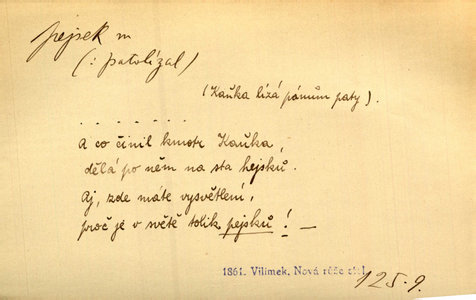 pejsek m
(: patolízal)
(Kaňka lízá pánům paty).
. . . . . . . .
A co činil kmotr Kaňka,
dělá po něm na sta hejsků.
Aj, zde máte vysvětlení,
proč je v světě tolik pejsků! —
1861. Vilímek. Nová růže stol.
125.9.